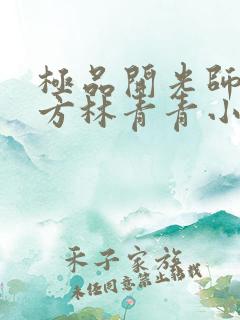 極品開光師
方林青青小
禾子家族
未经同意禁止转载